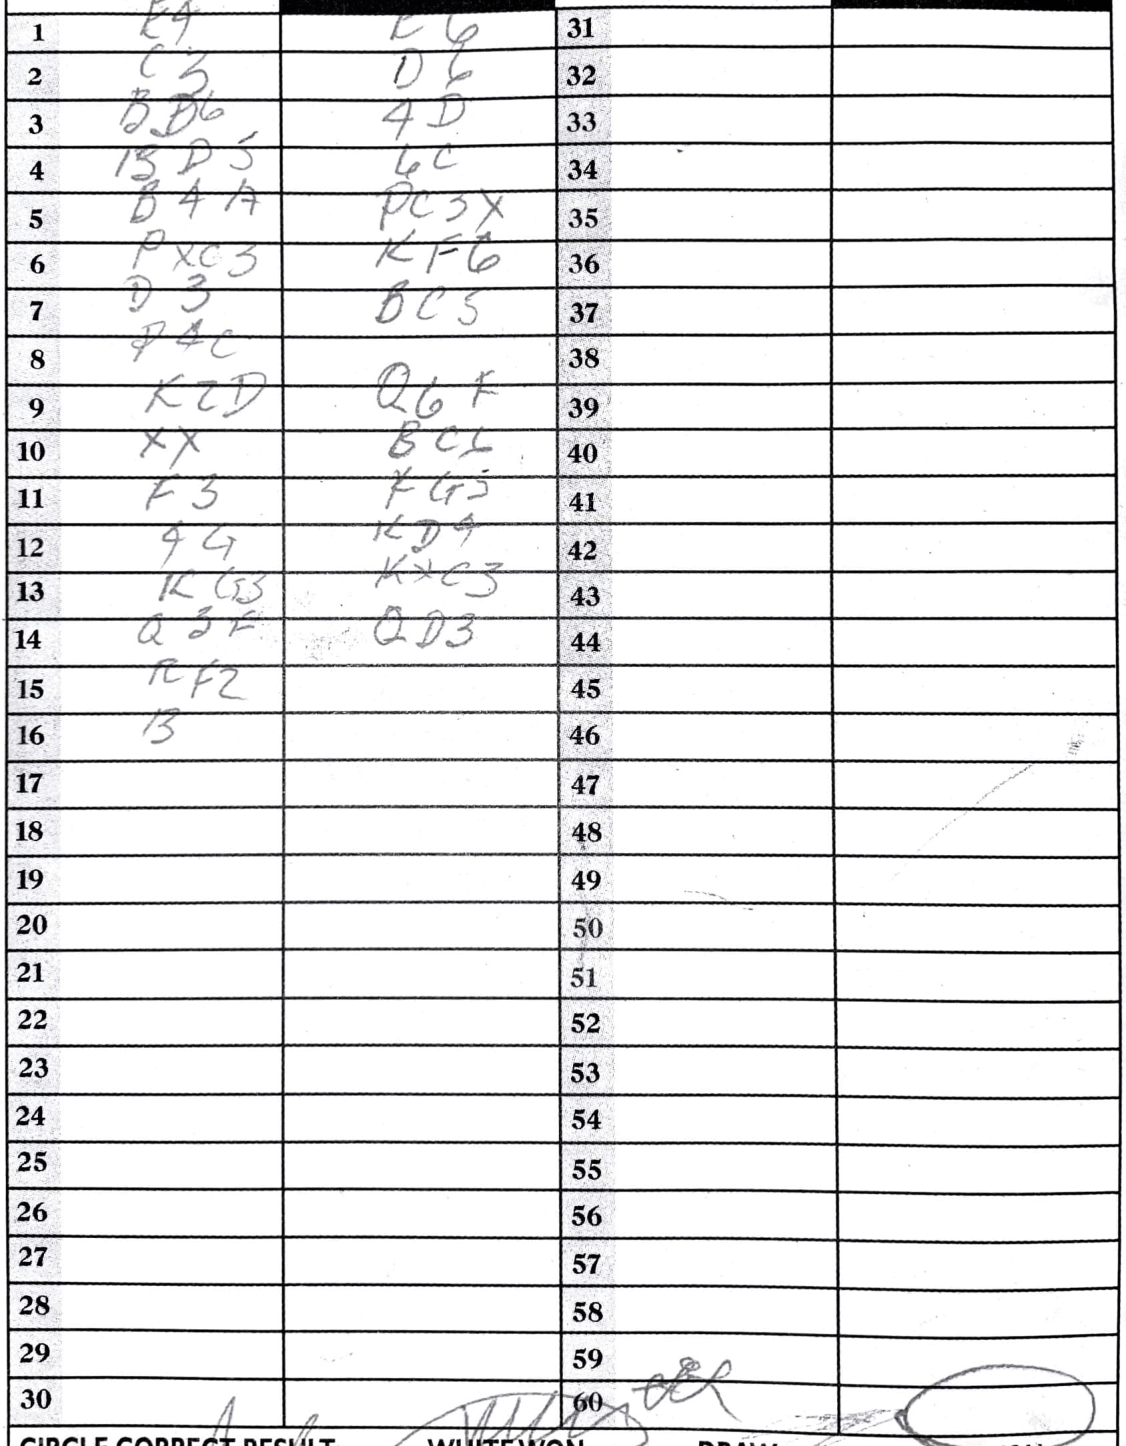 1 E4 E6 31
2 C3 D6 32
3 B B6 4D 33
4 B D5 6C 34
5 B4A PC3X 35
6 PXC3 KF6 36
7 D3 BC5 37
8 P4C 38
9 K2D Q6F 39
10 XX BC6 40
11 F3 KG5 41
12 4G KD4 42
13 KG3 KXC3 43
14 Q3F QD3 44
15 RF2 45
16 B 46
17 47
18 48
19 49
20 50
21 51
22 52
23 53
24 54
25 55
26 56
27 57
28 58
29 59
30 60
CIRCLE CORRECT RESULT WHITE WON DRAW